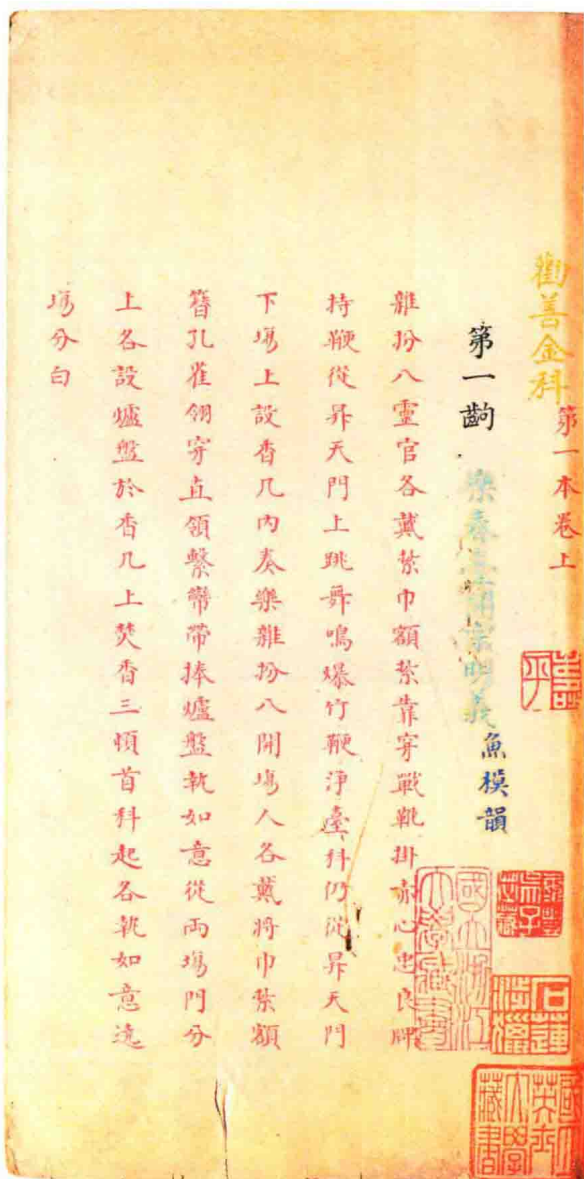 勸善金科 第一本卷上
第一齣 樂春臺開宗明義 魚模韻
雜扮八靈官各戴紥巾額紥靠穿戰靴掛赤心忠良牌
持鞭從昇天門上跳舞鳴爆竹鞭淨臺科仍從昇天門
下塲上設香几內奏樂雜扮八開塲人各戴將巾紥額
簪孔雀翎穿直領繫鸞帶捧爐盤執如意從兩塲門分
上各設爐盤於香几上焚香三頓首科起各執如意遶
塲分白
國立浙江大學藏書
國立英士大學藏書